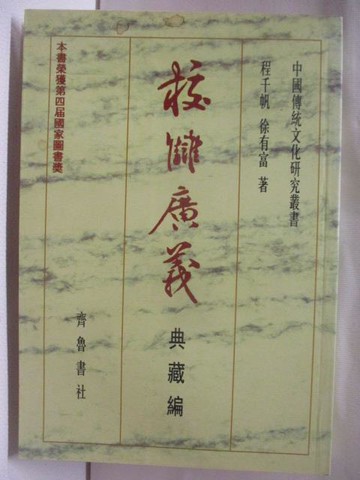 中國傳統文化研究叢書
程千帆 徐有富 著
校讎廣義
典藏編
齊魯書社
本書榮獲第四屆國家圖書獎